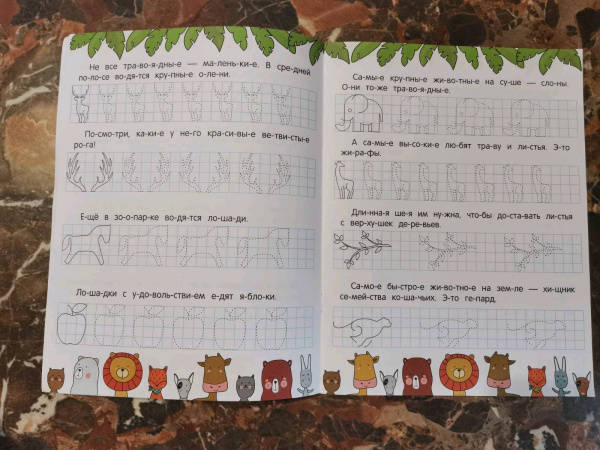 Не все тра-во-я-дны-е — ма-лень-ки-е. В сре-дней
по-ло-се во-дя-тся кру-пны-е о-ле-ни.
По-смо-три, ка-ки-е у не-го кра-си-вы-е ве-тви-сты-е
ро-га!
Е-щё в зо-о-пар-ке во-дя-тся ло-ша-ди.
Ло-ша-дки с у-до-воль-стви-ем е-дят я-бло-ки.
Са-мы-е кру-пны-е жи-во-тны-е на су-ше — сло-ны.
О-ни то-же тра-во-я-дны-е.
А са-мы-е вы-со-ки-е лю-бят тра-ву и ли-стья. Э-то
жи-ра-фы.
Дли-нна-я ше-я им ну-жна, что-бы до-ста-вать ли-стья
с вер-ху-шек де-ре-вьев.
Са-мо-е бы-стро-е жи-во-тно-е на зем-ле — хи-щник
се-мей-ства ко-ша-чьих. Э-то ге-пард.